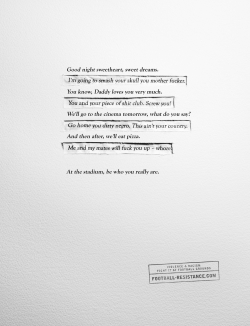 Good night sweetheart, sweet dreams.
I'm going to smash your skull you mother fucker.
You know, Daddy loves you very much.
You and your piece of shit club. Screw you!
We'll go to the cinema tomorrow, what do you say?
Go home you dirty negro. This ain't your country.
And then after, we'll eat pizza.
Me and my mates will fuck you up - whore.
At the stadium, be who you really are.
FOOTBALL-RESISTANCE.COM